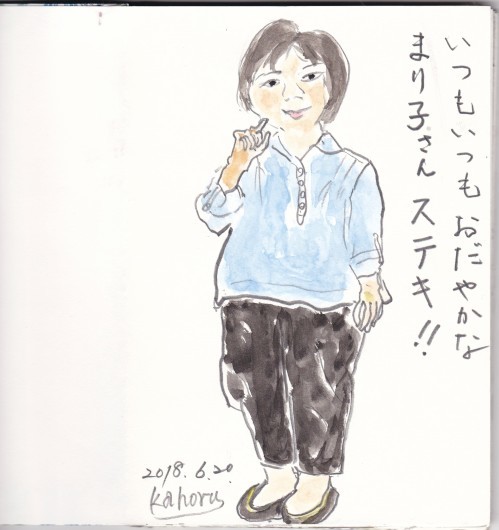 いつもいつも おだやかな
まり子さん ステキ!!
2018.6.20.
Kahoru